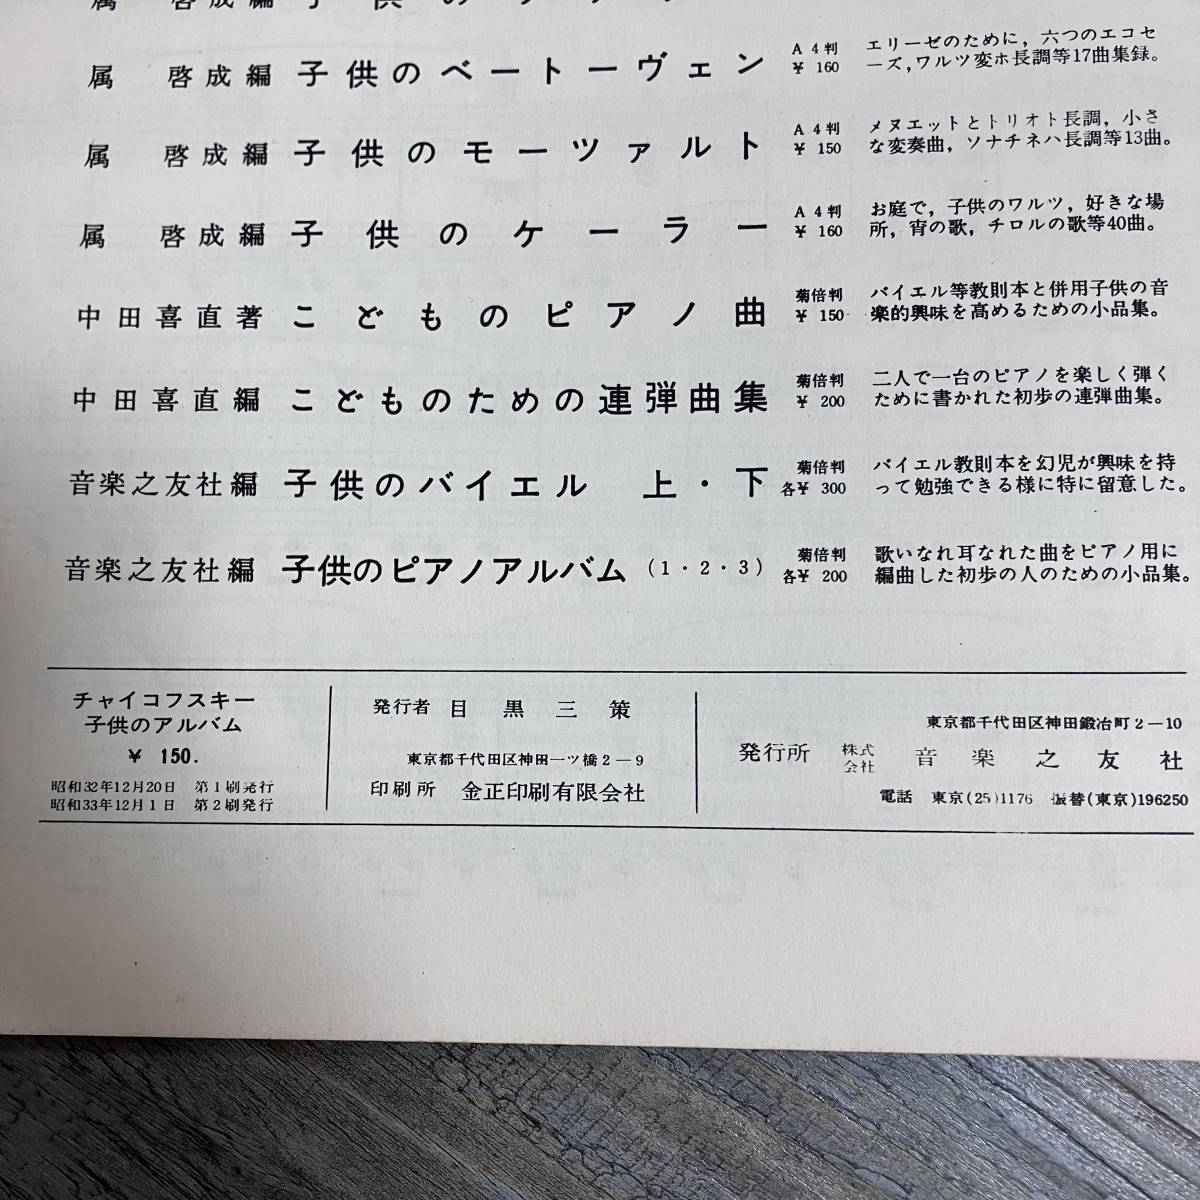 属 啓成編 子供のベートーヴェン A4判 ¥160 エリーゼのために，六つのエコセーズ，ワルツ変ホ長調等17曲集録。
属 啓成編 子供のモーツァルト A4判 ¥150 メヌエットとトリオト長調，小さな変奏曲，ソナチネハ長調等13曲。
属 啓成編 子供のケーラー A4判 ¥160 お庭で，子供のワルツ，好きな場所，宵の歌，チロルの歌等40曲。
中田喜直著 こどものピアノ曲 菊倍判 ¥150 バイエル等教則本と併用子供の音楽的興味を高めるための小品集。
中田喜直編 こどものための連弾曲集 菊倍判 ¥200 二人で一台のピアノを楽しく弾くために書かれた初歩の連弾曲集。
音楽之友社編 子供のバイエル 上・下 菊倍判 各¥300 バイエル教則本を幼児が興味を持って勉強できる様に特に留意した。
音楽之友社編 子供のピアノアルバム (1・2・3) 菊倍判 各¥200 歌いなれ耳なれた曲をピアノ用に編曲した初歩の人のための小品集。
チャイコフスキー
子供のアルバム
¥ 150.
昭和32年12月20日 第1刷発行
昭和33年12月1日 第2刷発行
発行者 目黒三策
東京都千代田区神田一ツ橋2－9
印刷所 金正印刷有限会社
東京都千代田区神田鍛冶町2－10
発行所 株式会社 音楽之友社
電話 東京(25)1176 振替(東京)196250